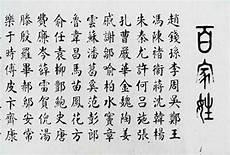 百家姓
趙錢孫李周吳鄭王
馮陳褚衛蔣沈韓楊
朱秦尤許何呂施張
孔曹嚴華金魏陶姜
戚謝鄒喻柏水竇章
雲蘇潘葛奚范彭郎
魯韋昌馬苗鳳花方
俞任袁柳酆鮑史唐
費廉岑薛雷賀倪湯
滕殷羅畢郝鄔安常
樂于時傅皮卞齊康